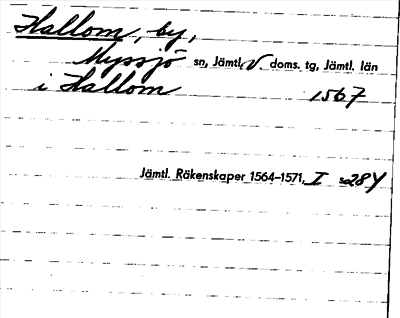 Hallom, by,
Myssjö sn, Jämtl. V. doms. tg, Jämtl. län
i Hallom 1567
Jämtl. Räkenskaper 1564–1571, I s 284